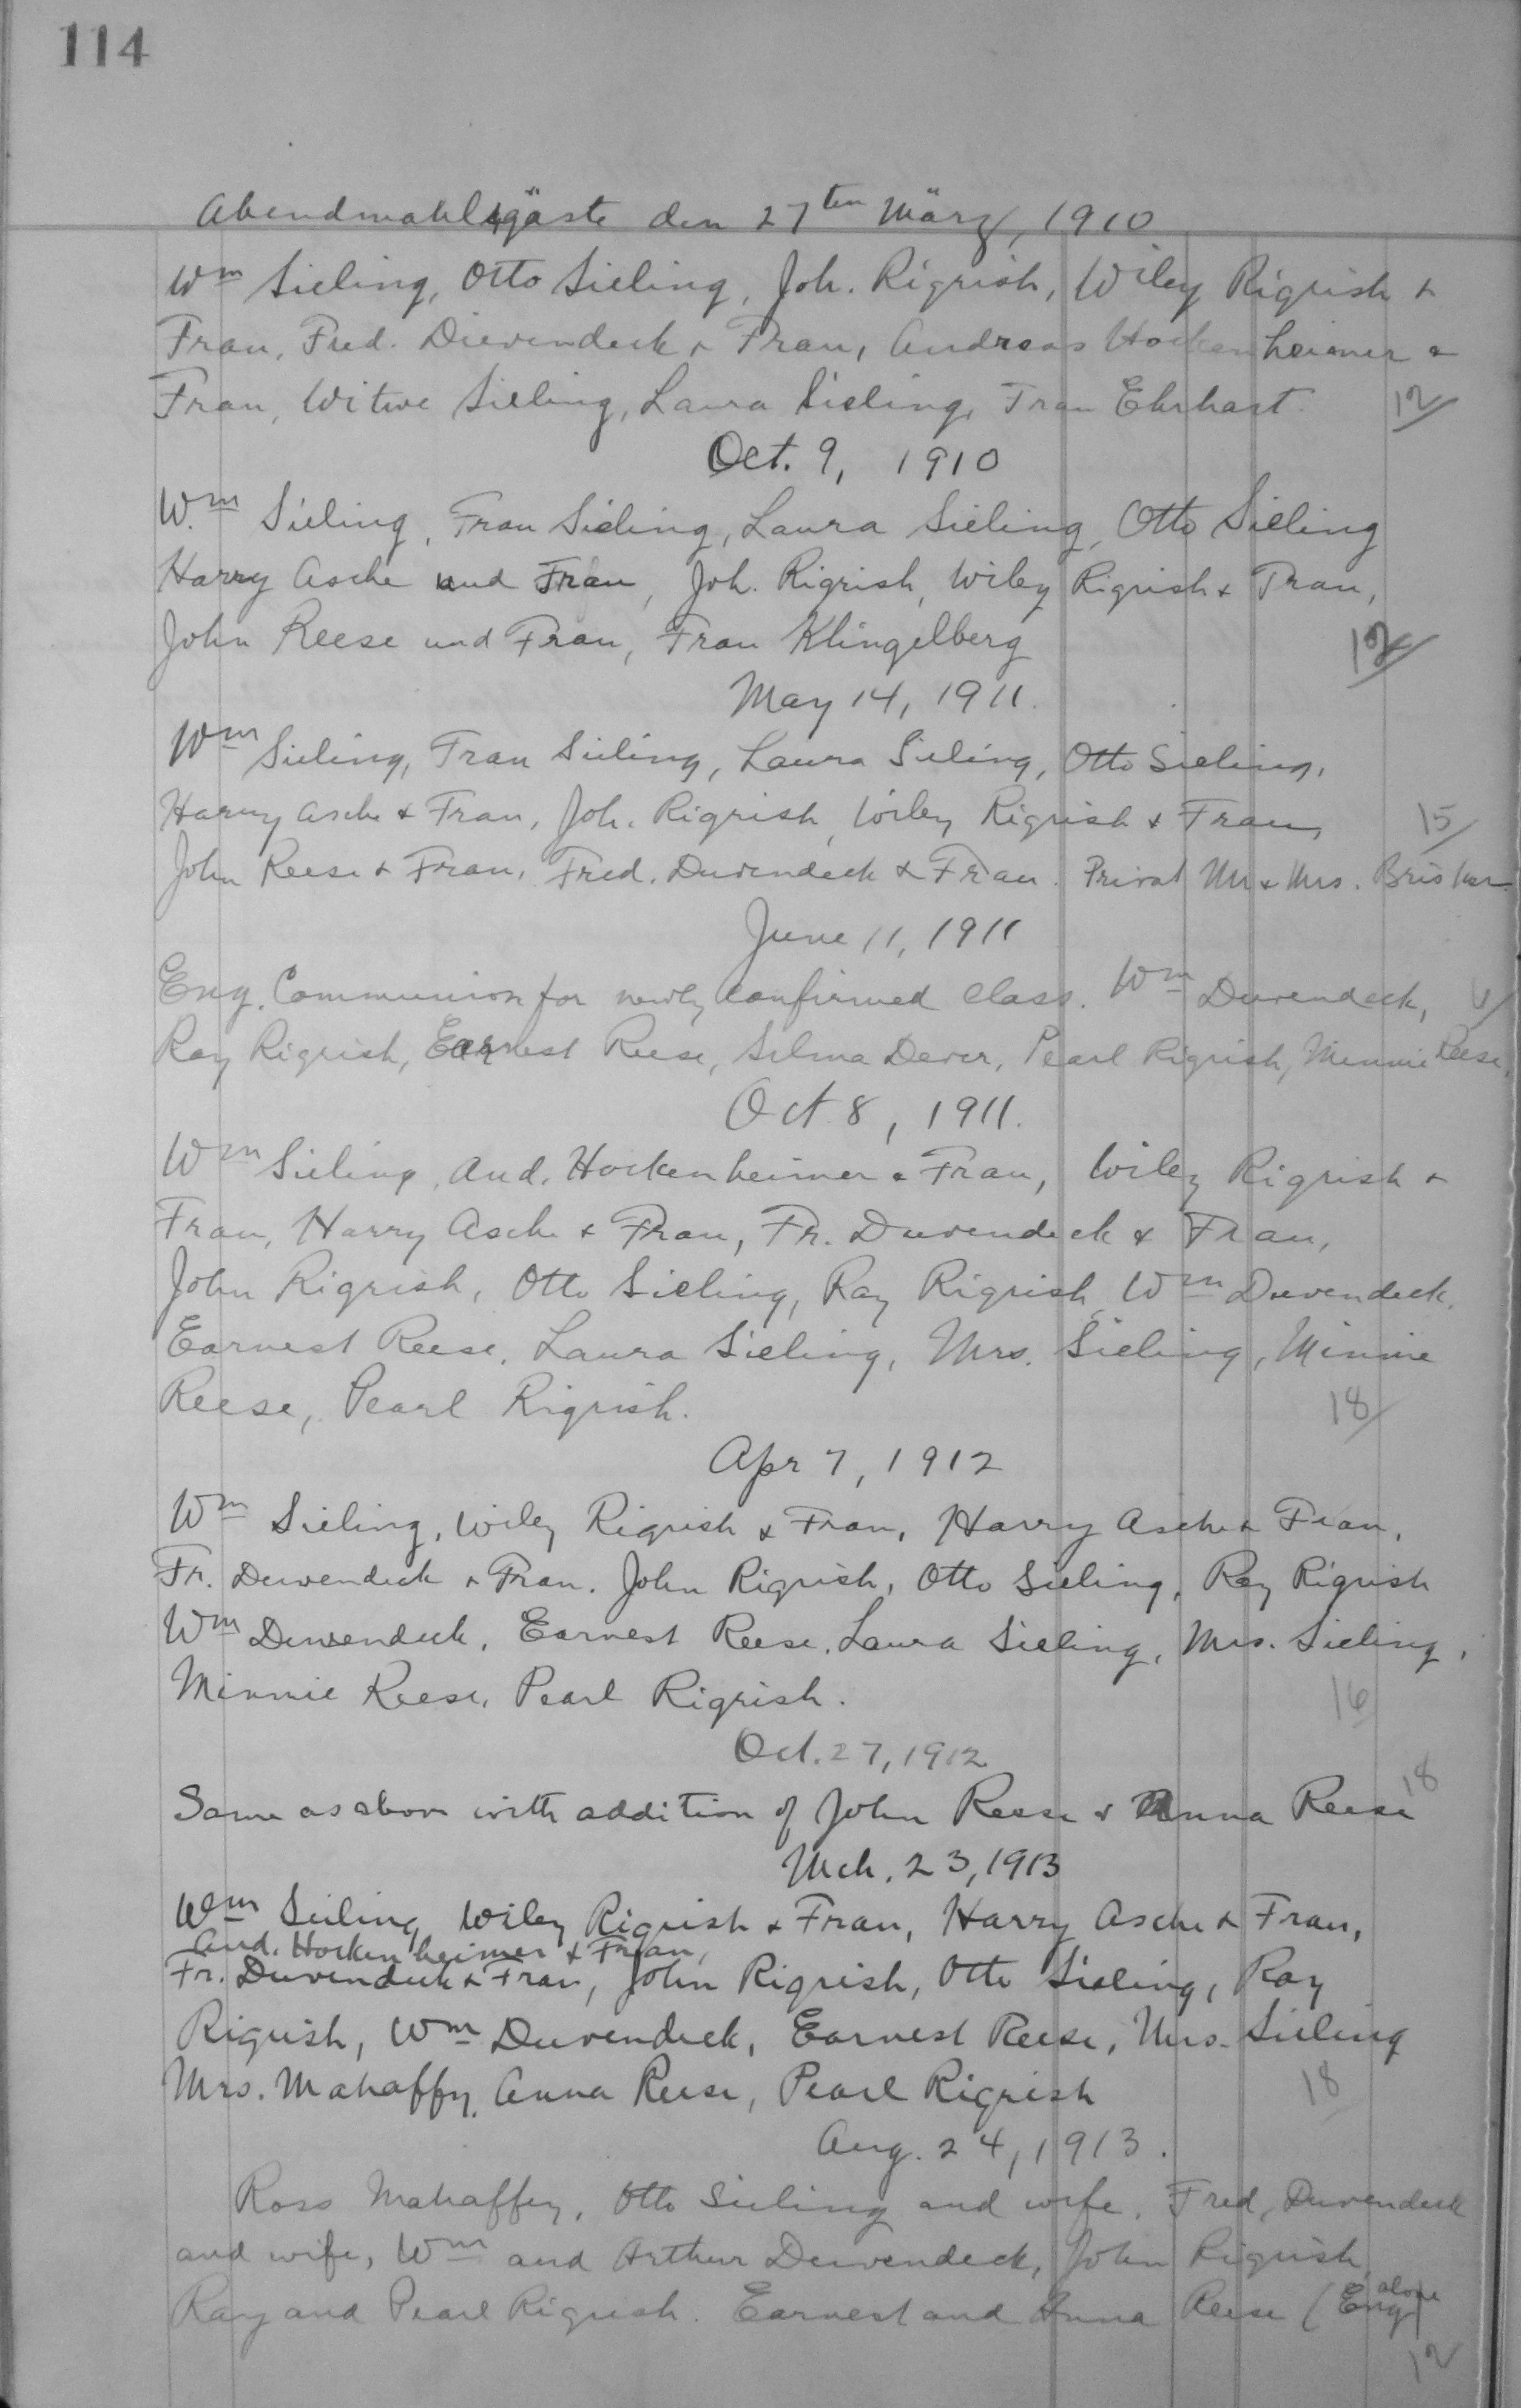 114
Abendmahlsgäste den 27ten März, 1910
Wm Sieling, Otto Sieling, Joh. Rigrish, Wiley Rigrish &
Frau, Fred. Dievendeck & Frau, Andreas Hockenheimer &
Frau, Witwe Sieling, Laura Sieling, Frau Ehrhart. 12/
Oct. 9, 1910
Wm Sieling, Frau Sieling, Laura Sieling, Otto Sieling
Harry Asche und Frau, Joh. Rigrish, Wiley Rigrish & Frau,
John Reese und Frau, Frau Klingelberg 12/
May 14, 1911.
Wm Sieling, Frau Sieling, Laura Sieling, Otto Sieling,
Harry Asche & Frau, Joh. Rigrish, Wiley Rigrish & Frau, 15/
John Reese & Frau, Fred. Duvendeck & Frau. Privat Mr & Mrs.
June 11, 1911
Eng. Communion for newly confirmed class. Wm Duvendeck, 6/
Ray Rigrish, Earnest Reese, Selma Dever, Pearl Rigrish, Minnie Reese,
Oct. 8, 1911.
Wm Sieling, And. Hockenheimer & Frau, Wiley Rigrish &
Frau, Harry Asche & Frau, Fr. Duvendeck & Frau,
John Rigrish, Otto Sieling, Ray Rigrish, Wm Duvendeck.
Earnest Reese, Laura Sieling, Mrs. Sieling, Minnie
Reese, Pearl Rigrish. 18/
Apr 7, 1912
Wm Sieling, Wiley Rigrish & Frau, Harry Asche & Frau,
Fr. Duvendeck & Frau. John Rigrish, Otto Sieling, Ray Rigrish
Wm Duvendeck, Earnest Reese, Laura Sieling, Mrs. Sieling,
Minnie Reese, Pearl Rigrish. 16
Oct. 27, 1912
18
Same as above with addition of John Reese & Anna Reese
Mch. 23, 1913
Wm Sieling, Wiley Rigrish & Frau, Harry Asche & Frau,
And. Hockenheimer & Frau,
Fr. Duvendeck & Frau, John Rigrish, Otto Sieling, Ray
Rigrish, Wm Duvendeck, Earnest Reese, Mrs. Sieling
Mrs. Mahaffy, Anna Reese, Pearl Rigrish 18
Aug. 24, 1913.
Ross Mahaffey, Otto Sieling and wife, Fred, Duvendeck
and wife, Wm and Arthur Duvendeck, John Rigrish,
Ray and Pearl Rigrish. Earnest and Anna Reese (Eng alone)
12